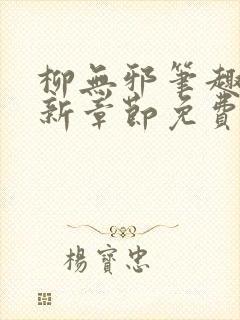 柳無邪筆趣
新章節免費
楊寶忠